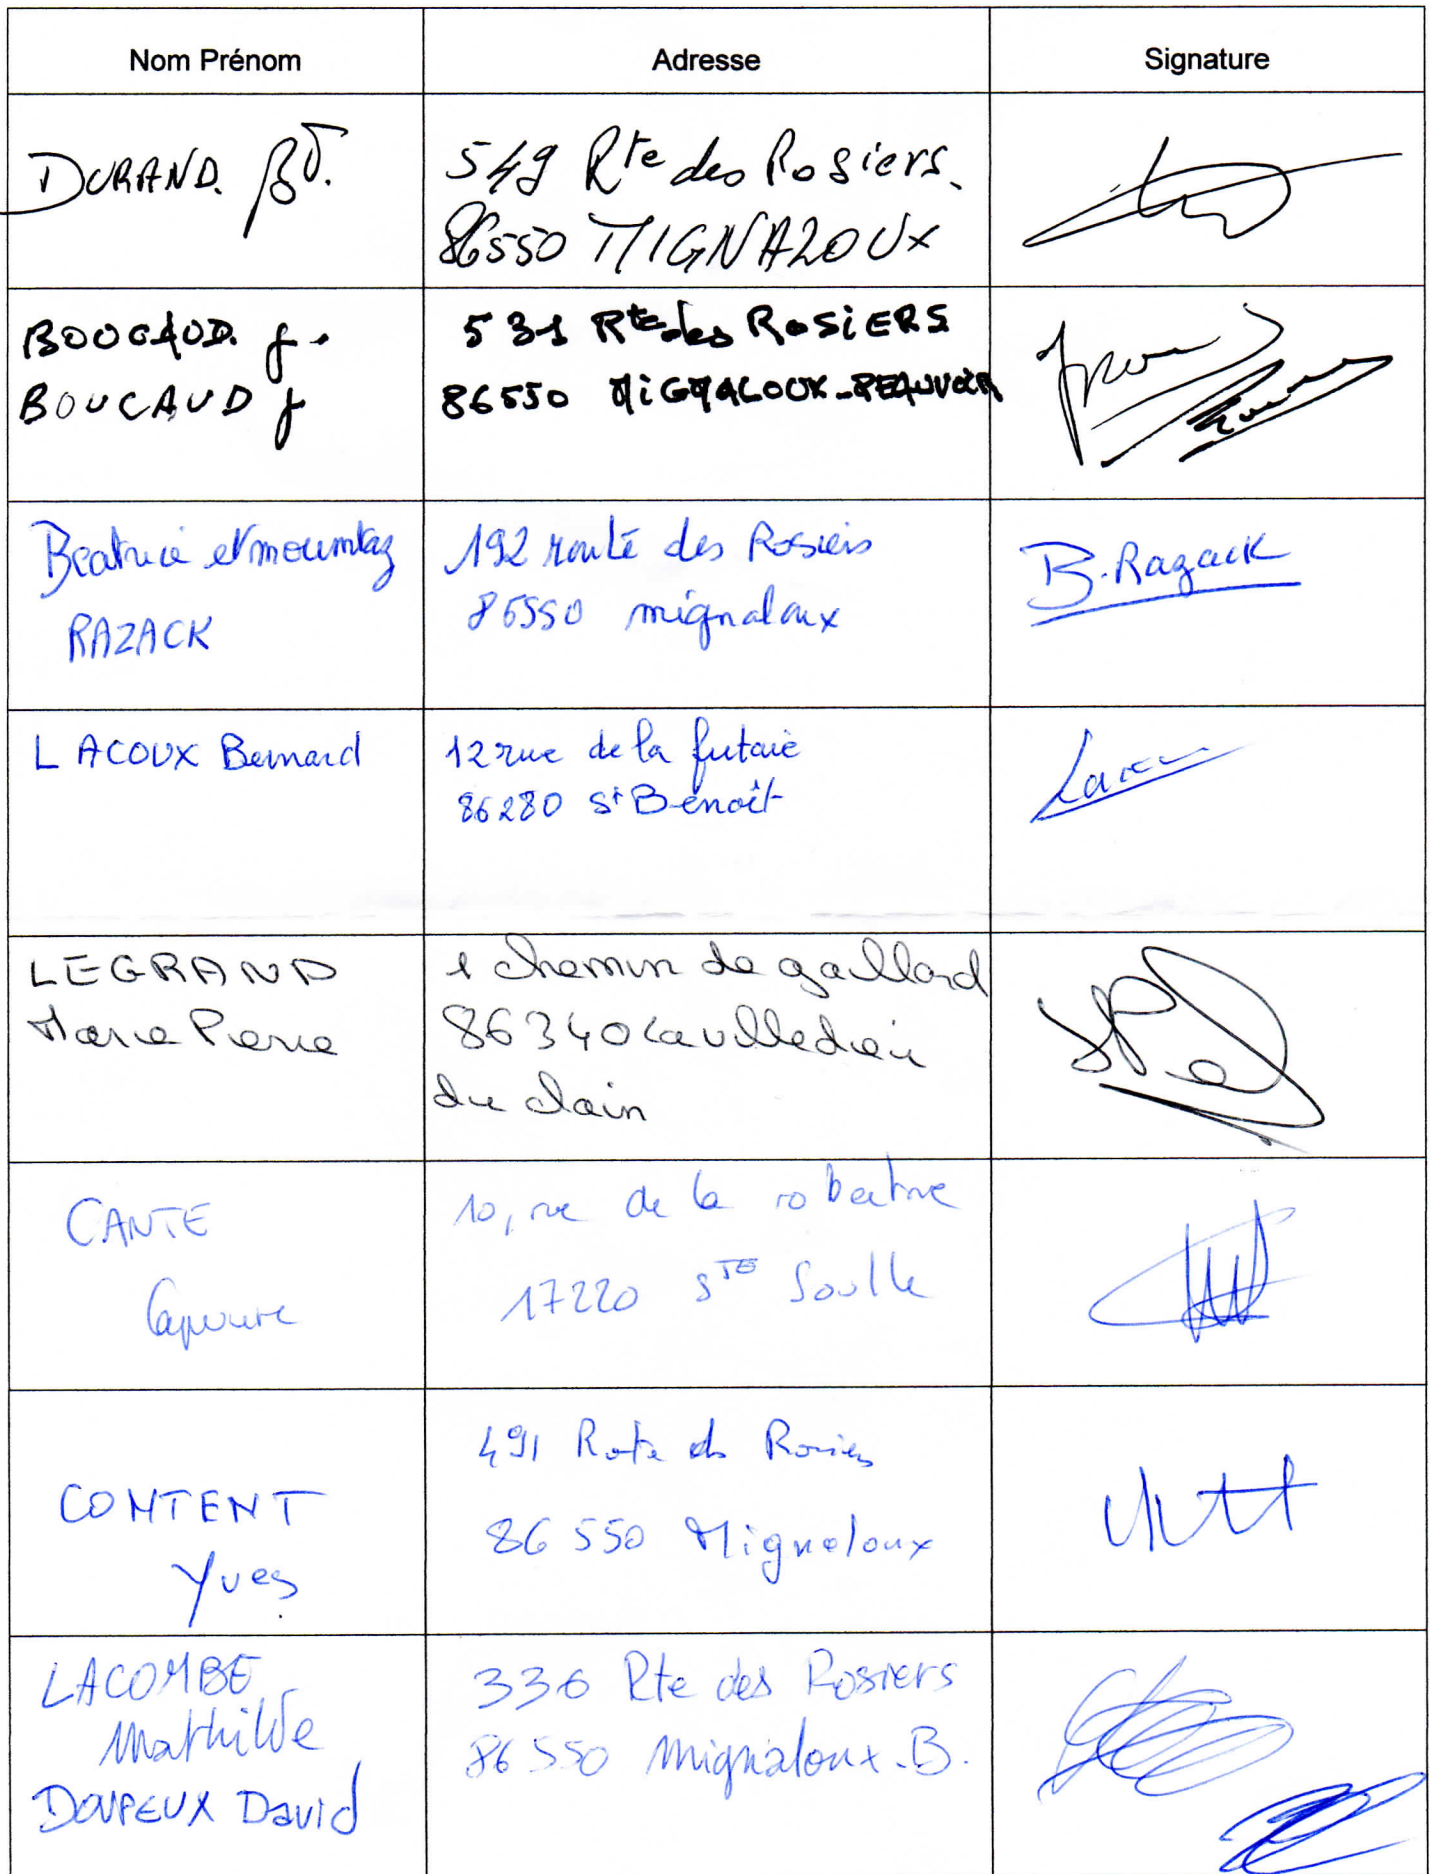 Nom Prénom
Adresse
Signature
DURAND.
549 Rte des Rosiers.
86550 MIGNALOUX
BOUCAUD J.
BOUCAUD J
531 Rte des ROSiERS
86550 MiGNALOUX-BEAUVOIR
Beatrice et moumtaz
RAZACK
192 route des Rosiers
86550 mignaloux
B.Razack
LACOUX Bernard
12 rue de la futaie
86280 St Benoît
LEGRAND
Marie Pierre
1 chemin de gaillard
86340 La villedieu
du clain
CANTE
10, rue de la
17220 STE Soulle
CONTENT
Yves
491 Route des Rosiers
86 550 Mignaloux
LACOMBE
Mathilde
DOUPEUX David
336 Rte des Rosiers
86 550 Mignaloux.B.